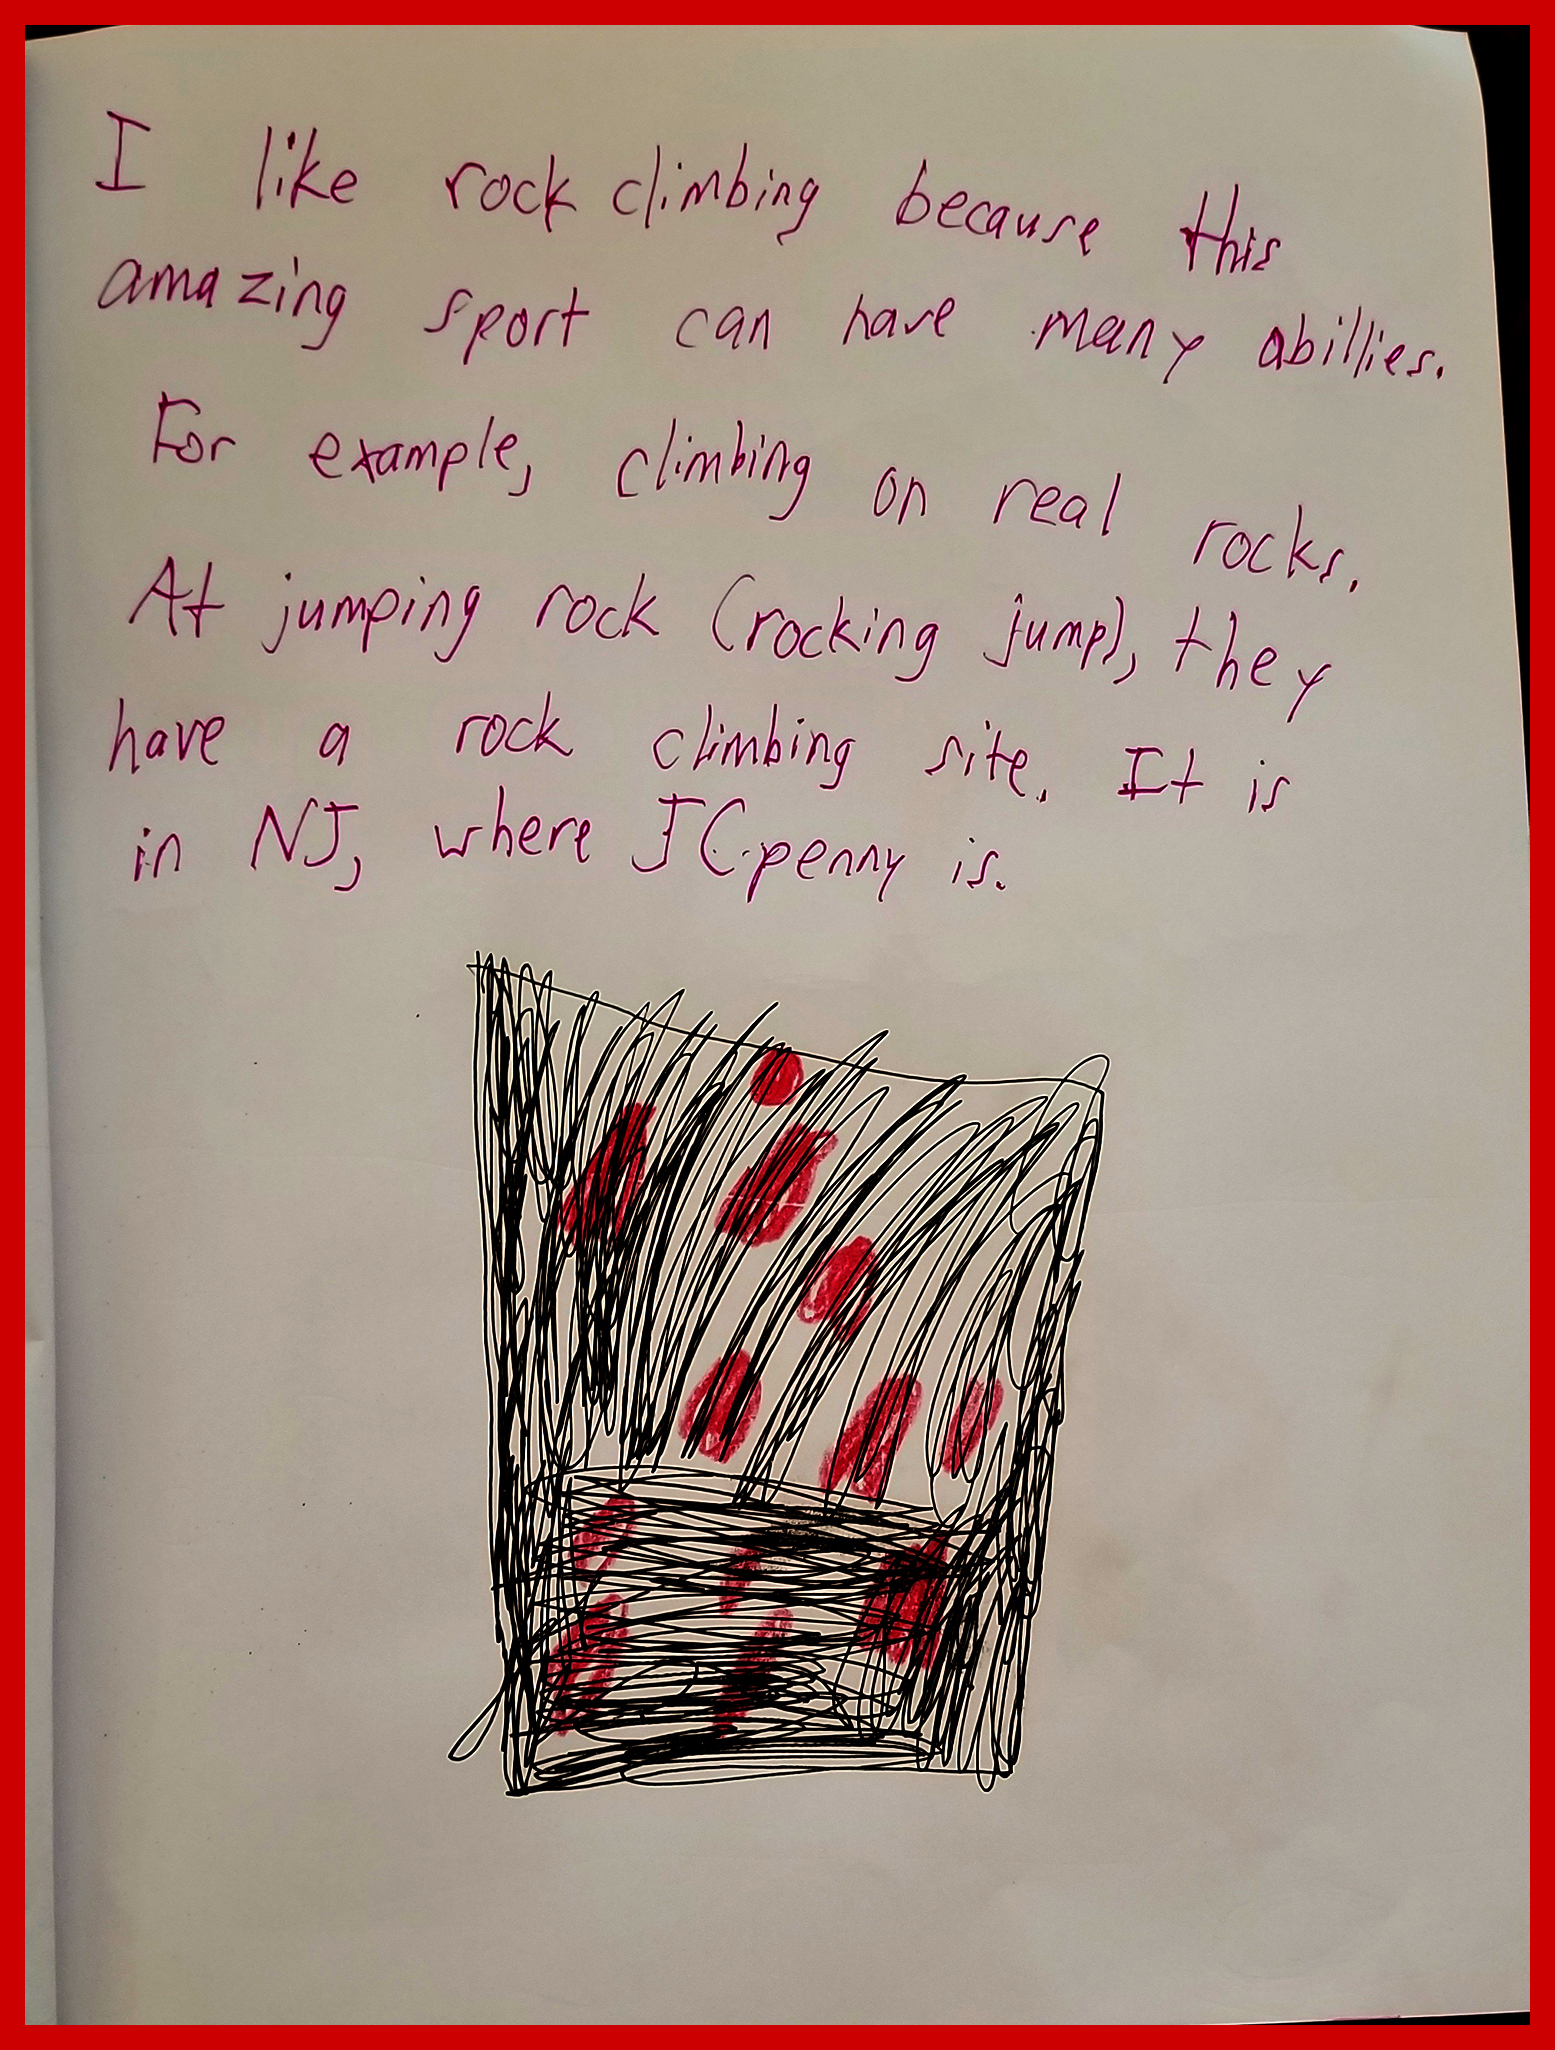 I like rock climbing because this
amazing sport can have many abillies.
For example, climbing on real rocks.
At jumping rock (rocking jump), they
have a rock climbing site. It is
in NJ, where JCpenny is.